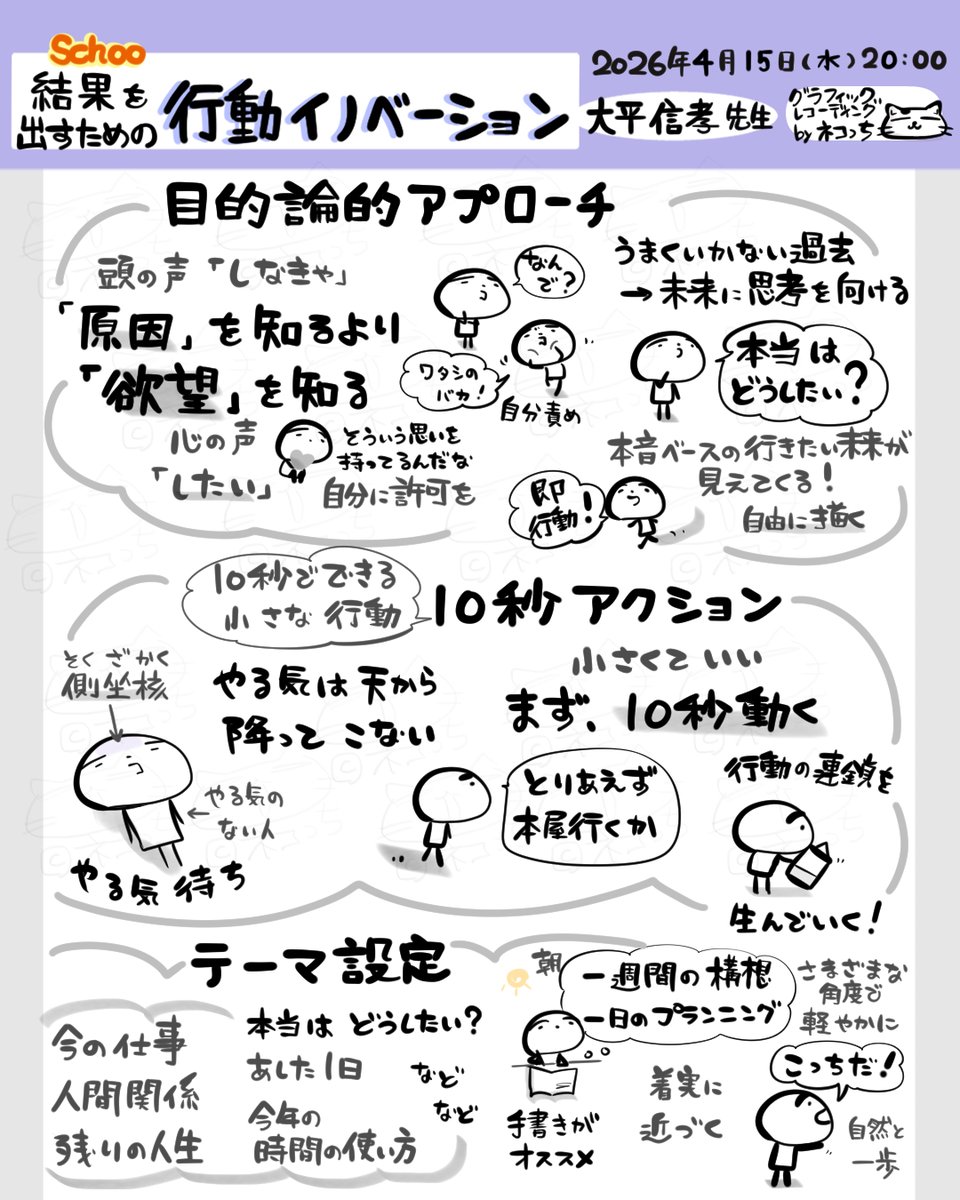 Schoo
結果を
出すための
行動イノベーション
2026年4月15日(水)20:00
大平信孝先生
グラフィック
レコーディング
by ネコっち
目的論的アプローチ
頭の声「しなきゃ」
「原因」を知るより
「欲望」を知る
心の声
「したい」
とういう思いを
持ってるんだな
自分に許可を
なん
で?
ワタシの
バカ!
自分責め
うまくいかない過去
→未来に思考を向ける
本当は
どうしたい?
本音ベースの行きたい未来が
見えてくる!
自由に描く
即
行動!
10秒でできる
小さな行動
10秒アクション
そくざかく
側坐核
やる気は天から
降ってこない
←やる気の
ない人
やる気待ち
小さくていい
まず、10秒動く
とりあえず
本屋行くか
行動の連鎖を
生んでいく!
テーマ設定
今の仕事
人間関係
残りの人生
本当はどうしたい?
あした1日
今年の
時間の使い方
など
など
朝
一週間の構想
一日のプランニング
手書きが
オススメ
さまざまな
角度で
軽やかに
着実に
近づく
こっちだ!
自然と
一歩